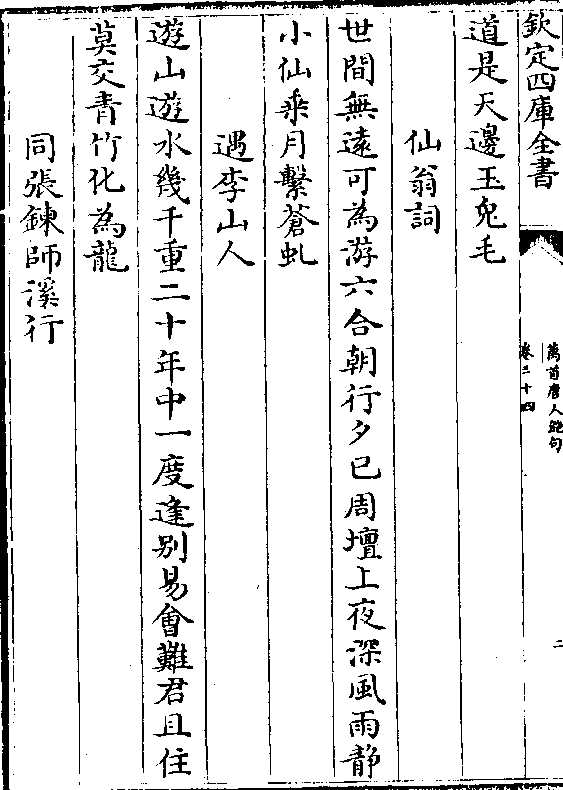 欽定四庫全書
萬首唐人絶句
卷三十四
二
道是天邊玉兔毛
仙翁詞
世間無遠可為游六合朝行夕已周壇上夜深風雨静
小仙乗月繫蒼虬
遇李山人
遊山遊水幾千重二十年中一度逢别易會難君且住
莫交青竹化為龍
同張鍊師溪行